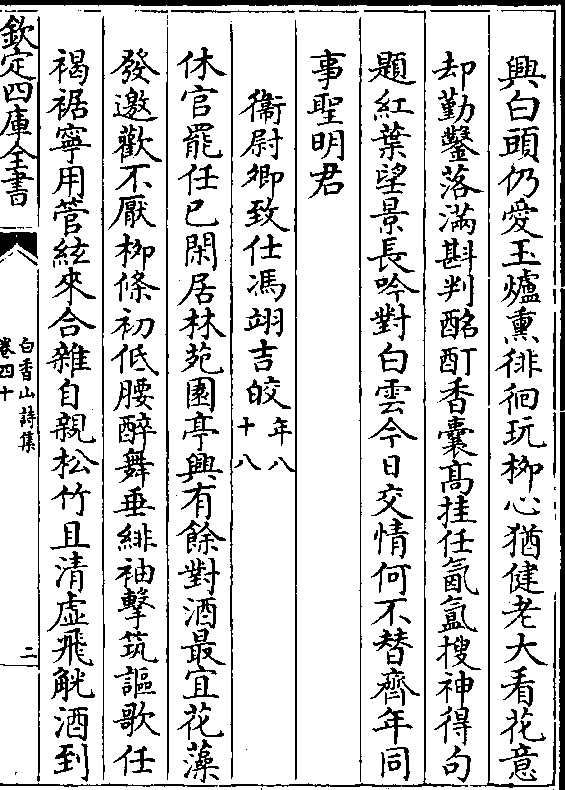 興白頭仍愛玉爐熏徘徊玩柳心猶健老大看花意
却勤鑿落滿斟判酩酊香囊髙挂任氤氲搜神得句
題紅葉望景長吟對白雲今日交情何不替齊年同
事聖明君
衞尉卿致仕馮翊吉皎年八十八
休官罷任已閑居林苑園亭興有餘對酒最宜花藻
發邀歡不厭柳條初低腰醉舞垂緋袖擊筑謳歌任
褐裾寧用管絃來合雜自親松竹且清虛飛觥酒到
欽定四庫全書
白香山詩集
卷四十
二